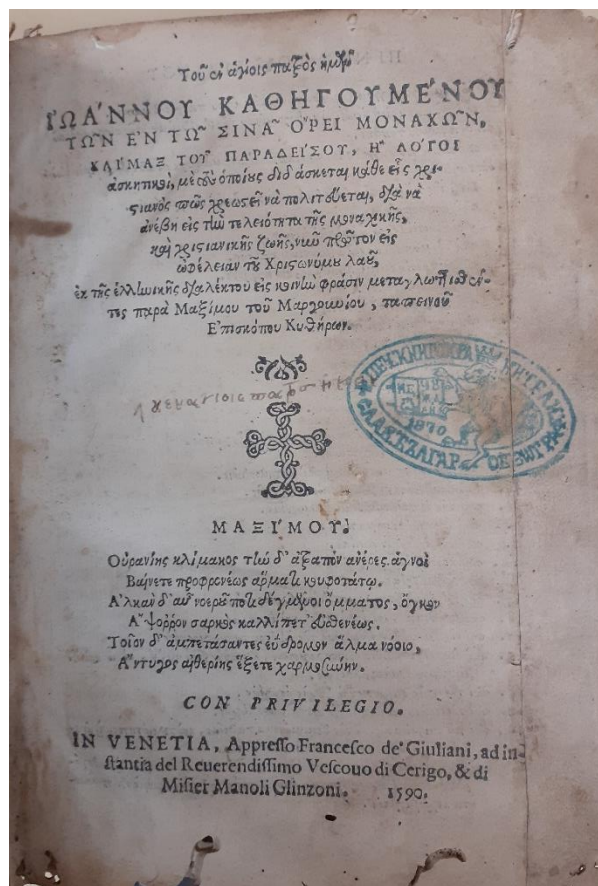 Τοῦ ἐν ἁγίοις πατρὸς ἡμῶν
ἸΩΆΝΝΟΥ ΚΑΘΗΓΟΥΜΈΝΟΥ
ΤΩ͂Ν ἘΝ ΤΩ͂ ΣΙΝΑ͂ ὌΡΕΙ ΜΟΝΑΧΩ͂Ν,
ΚΛΊΜΑΞ ΤΟΥ͂ ΠΑΡΑΔΕΊΣΟΥ, Ἢ ΛΌΓΟΙ
ἀσκητικοὶ, μὲ τοὺς ὁποίους διδάσκεται κάθε εἷς χρι-
στιανὸς πῶς χρεωστεῖ νὰ πολιτεύεται, διὰ νὰ
ἀνέβῃ εἰς τὴν τελειότητα τῆς μοναχικῆς,
καὶ χριστιανικῆς ζωῆς, νῦν πρῶτον εἰς
ὠφέλειαν τοῦ Χριστωνύμου λαοῦ,
ἐκ τῆς ἑλληνικῆς διαλέκτου εἰς κοινὴν φράσιν μεταγλωττισθέν-
τες παρὰ Μαξίμου τοῦ Μαργουνίου, ταπεινοῦ
Ἐπισκόπου Κυθήρων.
1870
ΜΑΞΊΜΟΥ.
Οὐρανίης κλίμακος τὴν δ' ἀτραπὸν ἀνέρες ἁγνοὶ
Βαίνετε προφρονέως ἅρματι κουφοτάτῳ.
Ἀλκὰν δ' αὖ νοεροῦ ποτιδέγμενοι ὄμματος, ὄγκον
Ἄψορρον σαρκὸς καλλίπετ' εὐσθενέως.
Τοῖον δ' ἀμπετάσαντες ἐΰδρομον ἅλμα νόοιο,
Ἄντυγος αἰθερίης ἕξετε χαρμοσύνην.
CON PRIVILEGIO.
IN VENETIA, Appresso Francesco de' Giuliani, ad in-
stantia del Reuerendissimo Vescouo di Cerigo, & di
Misier Manoli Glinzoni. 1590.